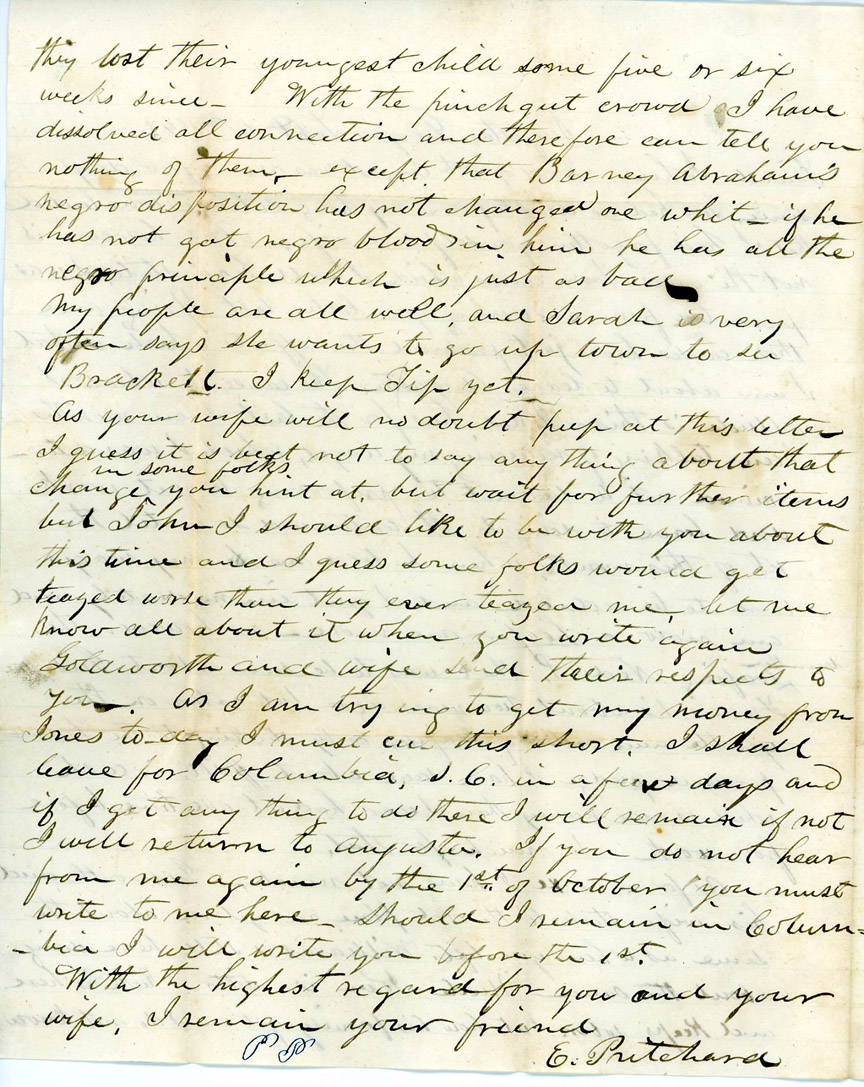 they lost their youngest child some five or six
weeks since – With the pinchgut crowd I have
dissolved all connection and therefore can tell you
nothing of them, – except that Barney Abraham's
negro disposition has not changed one whit – if he
has not got negro blood in him he has all the
negro principle which is just as bad
My people are all well, and Sarah is very
often says she wants to go up town to see
Brackett. I keep Tip yet.
As your wife will no doubt peep at this letter
I guess it is best not to say any thing about that
in some folks
change you hint at, but wait for further items
but John I should like to be with you about
this time and I guess some folks would get
teazed worse than they ever teazed me, let me
know all about it when you write again
Goldsworth and wife send their respects to
you –. As I am trying to get my money from
Jones to-day I must cut this short. I shall
leave for Columbia, S. C. in a few days and
if I get any thing to do there I will remain if not
I will return to Augusta. If you do not hear
from me again by the 1st of October you must
write to me here – should I remain in Colum=
-bia I will write you before the 1st.
With the highest regard for you and your
wife, I remain your friend
E. Pritchard